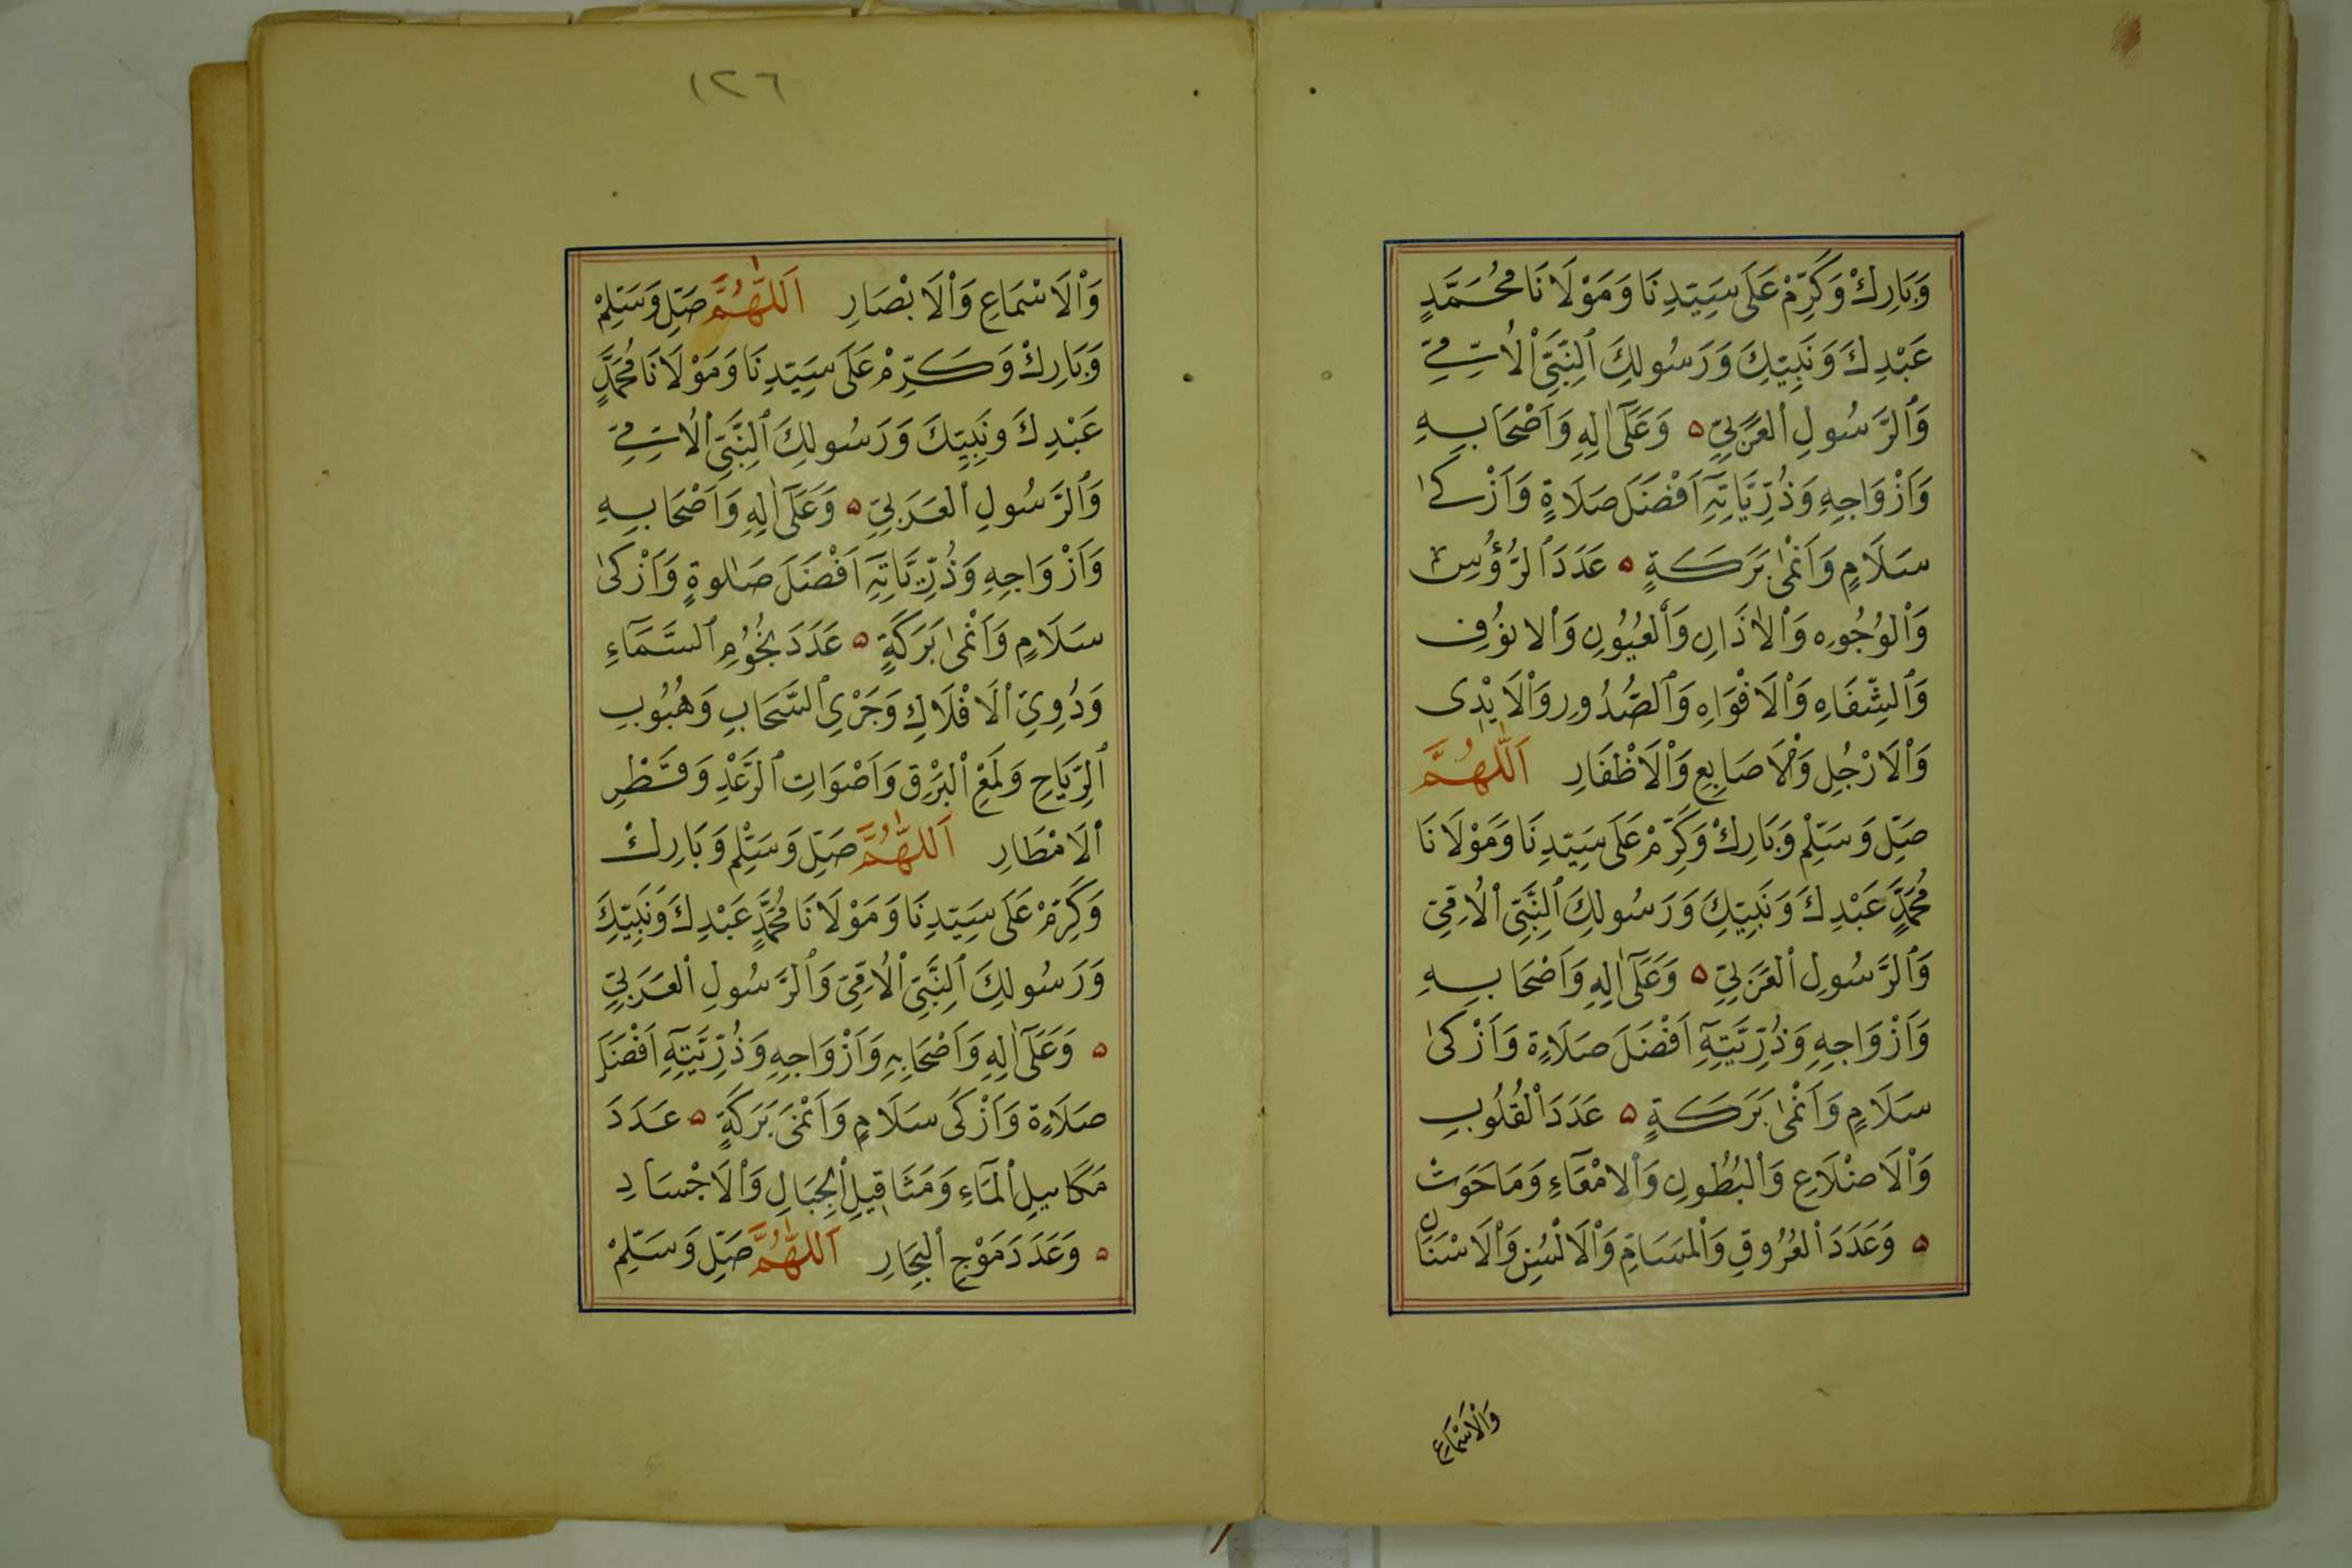 وَبَارِكْ وَكَرِّمْ عَلَى سَيِّدِنَا وَمَوْلَانَا مُحَمَّدٍ
عَبْدِكَ وَنَبِيِّكَ وَرَسُولِكَ ٱلنَّبِيِّ ٱلْأُمِّيِّ
وَٱلرَّسُولِ ٱلْعَرَبِيِّ ۵ وَعَلَىٰٓ اٰلِهِ وَاَصْحَابِهِ
وَاَزْوَاجِهِ وَذُرِّيَّاتِهِٓ اَفْضَلَ صَلَاةٍ وَاَزْكىٰ
سَلَامٍ وَاَنْمىٰ بَرَكَةٍ ۵ عَدَدَ ٱلرُّؤُسِ
وَٱلْوُجُوهِ وَٱلْاٰذَانِ وَٱلْعُيُونِ وَٱلْانُوُفِ
وَٱلشِّفَاهِ وَٱلْاَفْوَاهِ وَٱلصُّدُورِ وَٱلْاَيْدِى
وَٱلْاَرْجُلِ وَٱلْاَصَابِعِ وَٱلْاَظْفَارِ اَللّٰهُمَّ
صَلِّ وَسَلِّمْ وَبَارِكْ وَكَرِّمْ عَلَى سَيِّدِنَا وَمَوْلَانَا
مُحَمَّدٍ عَبْدِكَ وَنَبِيِّكَ وَرَسُولِكَ ٱلنَّبِيِّ ٱلْاُمِّيِّ
وَٱلرَّسُولِ ٱلْعَرَبِيِّ ۵ وَعَلَىٰٓ اٰلِهِ وَاَصْحَابِهِ
وَاَزْوَاجِهِ وَذُرِّيَّتِهِٓ اَفْضَلَ صَلَاةٍ وَاَزْكىٰ
سَلَامٍ وَاَنْمىٰ بَرَكَةٍ ۵ عَدَدَ ٱلْقُلُوبِ
وَٱلْاَضْلَاعِ وَٱلْبُطُونِ وَٱلْامْعَآءِ وَمَا حَوَتْ
۵ وَعَدَدَ ٱلْعُرُوقِ وَٱلْمَسَامِّ وَٱلْاَلْسُنِ وَٱلْاَسْنَانِ
وَالْاَسْمَاعِ
١٢٦
وَٱلْاَسْمَاعِ وَٱلْاَبْصَارِ اَللّٰهُمَّ صَلِّ وَسَلِّمْ
وَبَارِكْ وَكَرِّمْ عَلَى سَيِّدِنَا وَمَوْلَانَا مُحَمَّدٍ
عَبْدِكَ وَنَبِيِّكَ وَرَسُولِكَ ٱلنَّبِيِّ ٱلْاُمِّيِّ
وَٱلرَّسُولِ ٱلْعَرَبِيِّ ۵ وَعَلَىٰٓ اٰلِهِ وَاَصْحَابِهِ
وَاَزْوَاجِهِ وَذُرِّيَّاتِهِٓ اَفْضَلَ صَلٰوةٍ وَاَزْكىٰ
سَلَامٍ وَاَنْمىٰ بَرَكَةٍ ۵ عَدَدَ نُجُوُمِ ٱلسَّمَآءِ
وَدُوِيِّ ٱلْاَفْلَاكِ وَجَرْيِ ٱلسَّحَابِ وَهُبُوُبِ
ٱلرِّيَاحِ وَلَمْعِ ٱلْبَرْقِ وَاَصْوَاتِ ٱلرَّعْدِ وَقَطْرِ
ٱلْاَمْطَارِ اَللّٰهُمَّ صَلِّ وَسَلِّمْ وَبَارِكْ
وَكَرِّمْ عَلَى سَيِّدِنَا وَمَوْلَانَا مُحَمَّدٍ عَبْدِكَ وَنَبِيِّكَ
وَرَسُولِكَ ٱلنَّبِيِّ ٱلْاُمِّيِّ وَٱلرَّسُولِ ٱلْعَرَبِيِّ
۵ وَعَلَىٰٓ اٰلِهِ وَاَصْحَابِهِ وَاَزْوَاجِهِ وَذُرِّيَّتِهِٓ اَفْضَلَ
صَلَاةٍ وَاَزْكَى سَلَامٍ وَاَنْمَى بَرَكَةٍ ۵ عَدَدَ
مَكَايِيلِ ٱلْمَآءِ وَمَثَاقِيلِ ٱلْجِبَالِ وَٱلْاَجْسَادِ
۵ وَعَدَدَ مَوْجِ ٱلْبِحَارِ اَللّٰهُمَّ صَلِّ وَسَلِّمْ